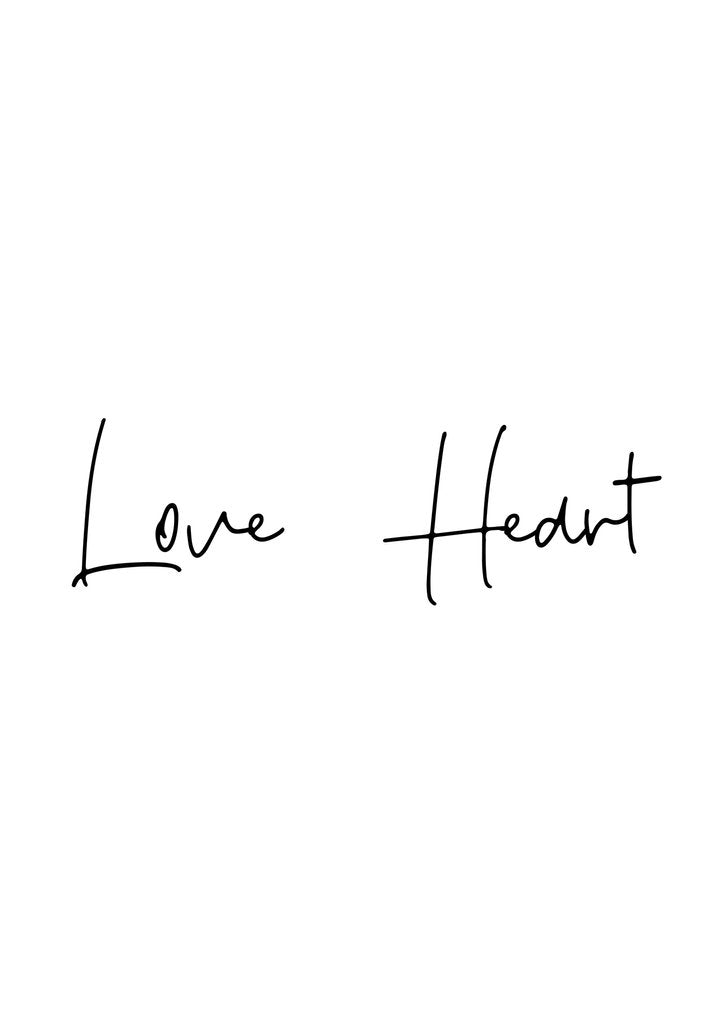 Love Heart